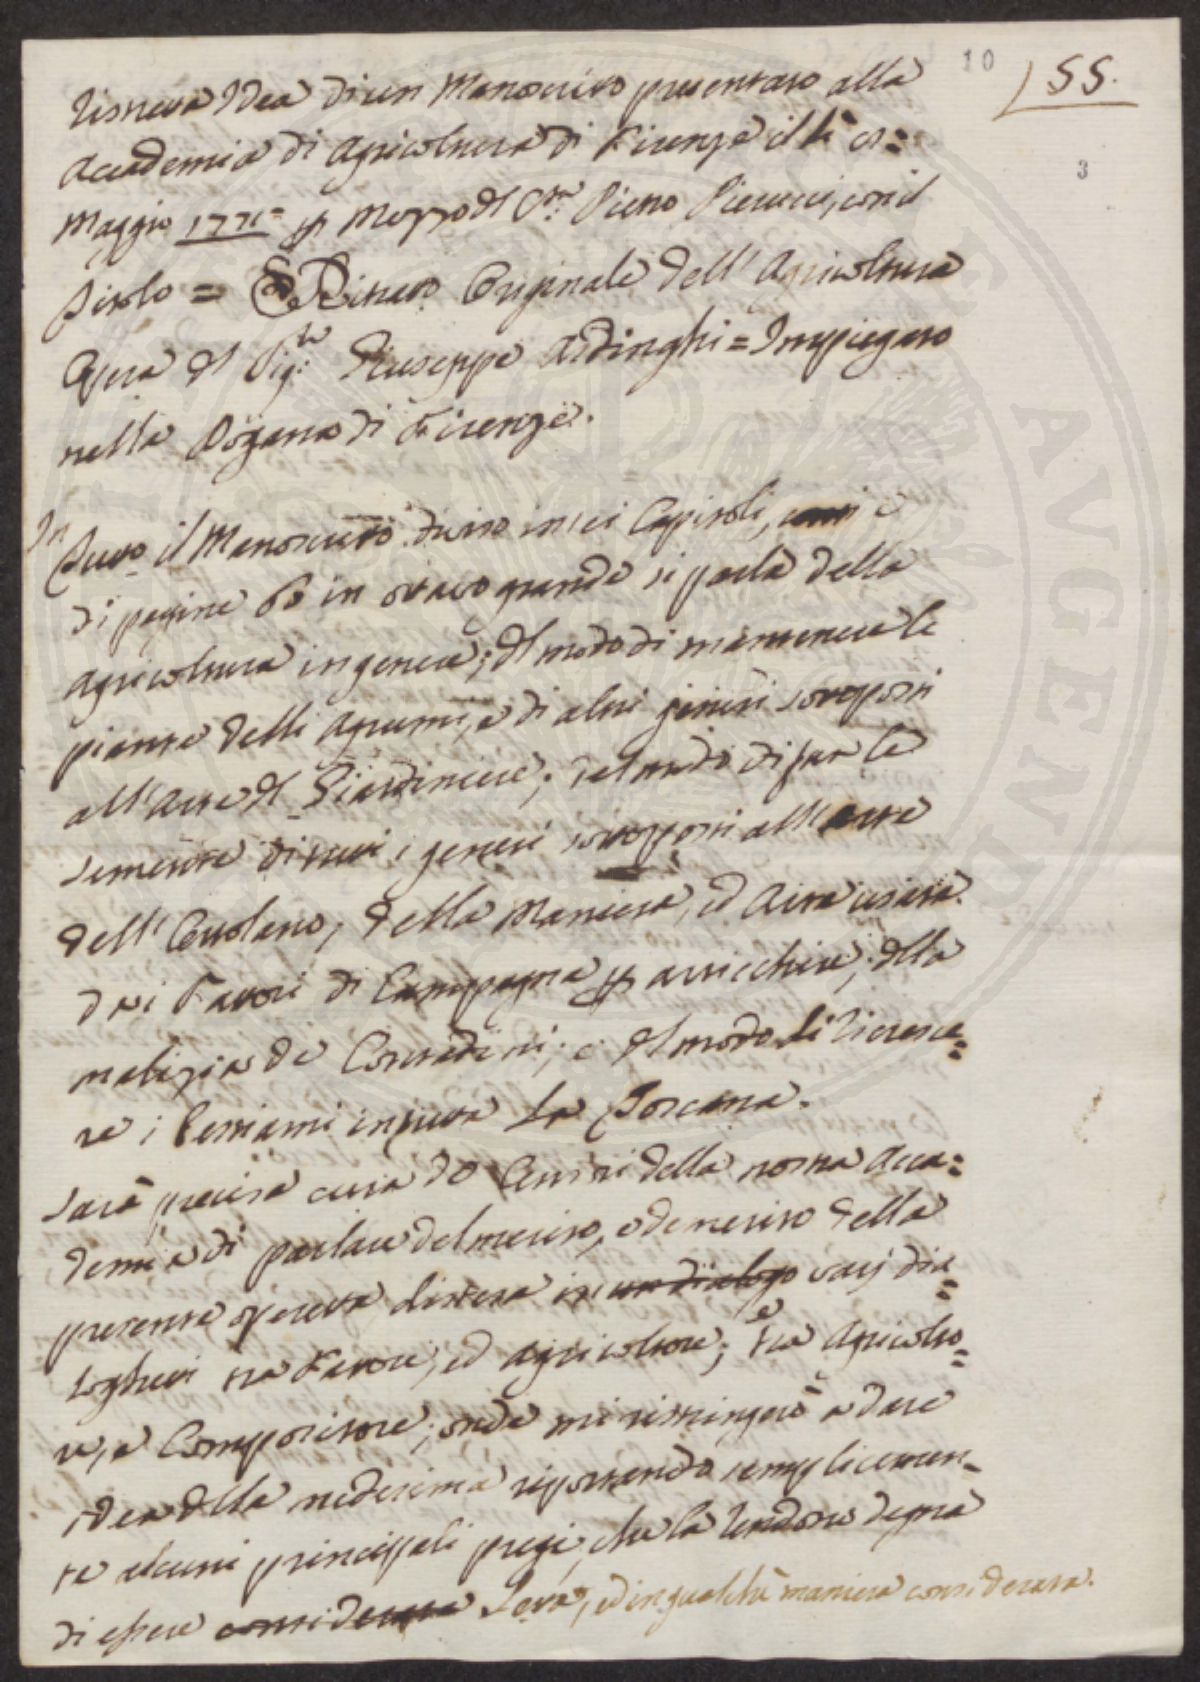 10
55.
3
Ristretta Idea di un Manoscritto presentato alla
Accademia di Agricoltura di Firenze il dì
Maggio 1771= p mezzo del Pietro Pierucci, con il
titolo = Ritratto Originale dell' Agricoltura
Opera del Sig.re Giuseppe Ardinghi = Impiegato
nella Dogana di Firenze.
In
tutto il Manoscritto diviso in sei Capitoli, e
di pagine 60 in ottavo grande si parla della
Agricoltura in genere; del modo di mantenere le
piante delli Agrumi, e di altri generi sottoposti
all'Arte del Giardiniere; del modo di far le
semente di tutti i generi sottoposti all'Arte
dell' Ortolano; della Maniera, ed Arte usata
dai Fattori di Campagna p arricchire; della
malizia de Contadini; e del modo di ricresce=
re i Bestiami in tutta la Toscana.
Sarà precisa cura de Censori della nostra Acca=
demia di parlare del merito, e demerito della
presente operetta distesa in un dialogo varj dia=
loghetti tra Fattore, ed Agricoltore; e tra Agricolto=
re, e Compositore; onde mi ristringerò a dare
idea della medesima riportando semplicemen=
te alcuni principali pregi, che la rendono degna
di essere considerata letta, ed in qualche maniera considerata.
AVGENDAE